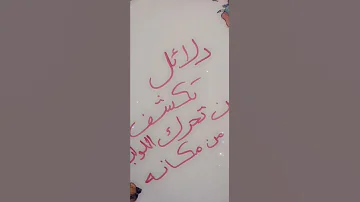 دلائل
تكشف
تحرك اللولب
من مكانه